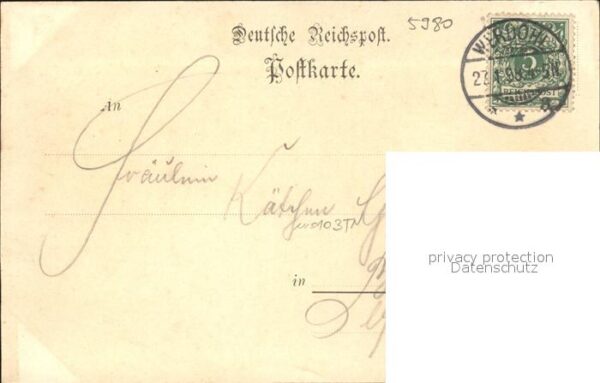 5980
Deutsche Reichspost.
Postkarte.
WERDOHL
5
REICHSPOST
An
Fräulein
Kätchen
in
privacy protection
Datenschutz